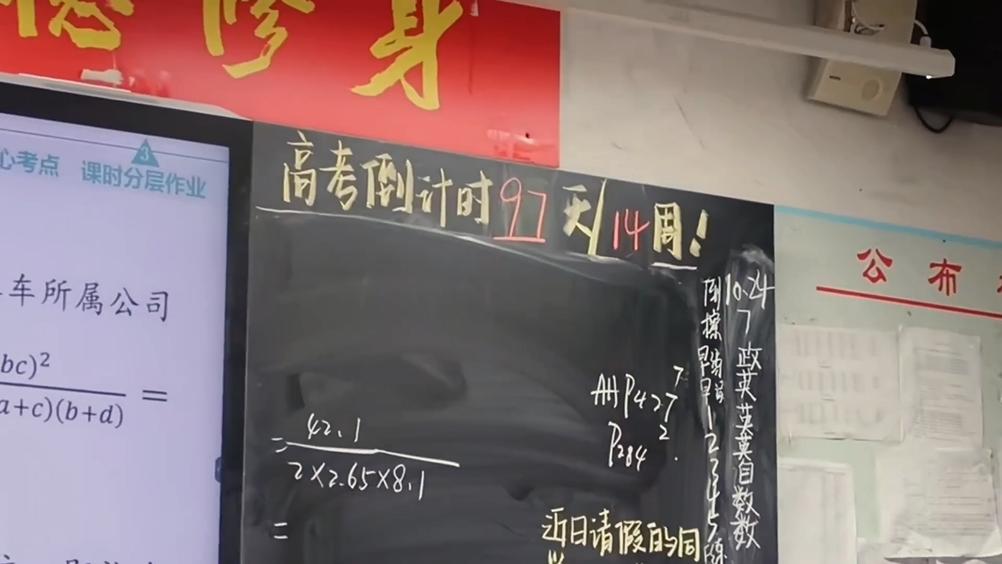 修身
心考点 课时分层作业
3
车所属公司
bc)²
a+c)(b+d) =
高考倒计时97天/14周!
= 42.1
2×2.65×8.1
=
P427
P284
近日请假的同
10.24
7
政
英
英
英
自
数
数
1
2
3
4
5
公布